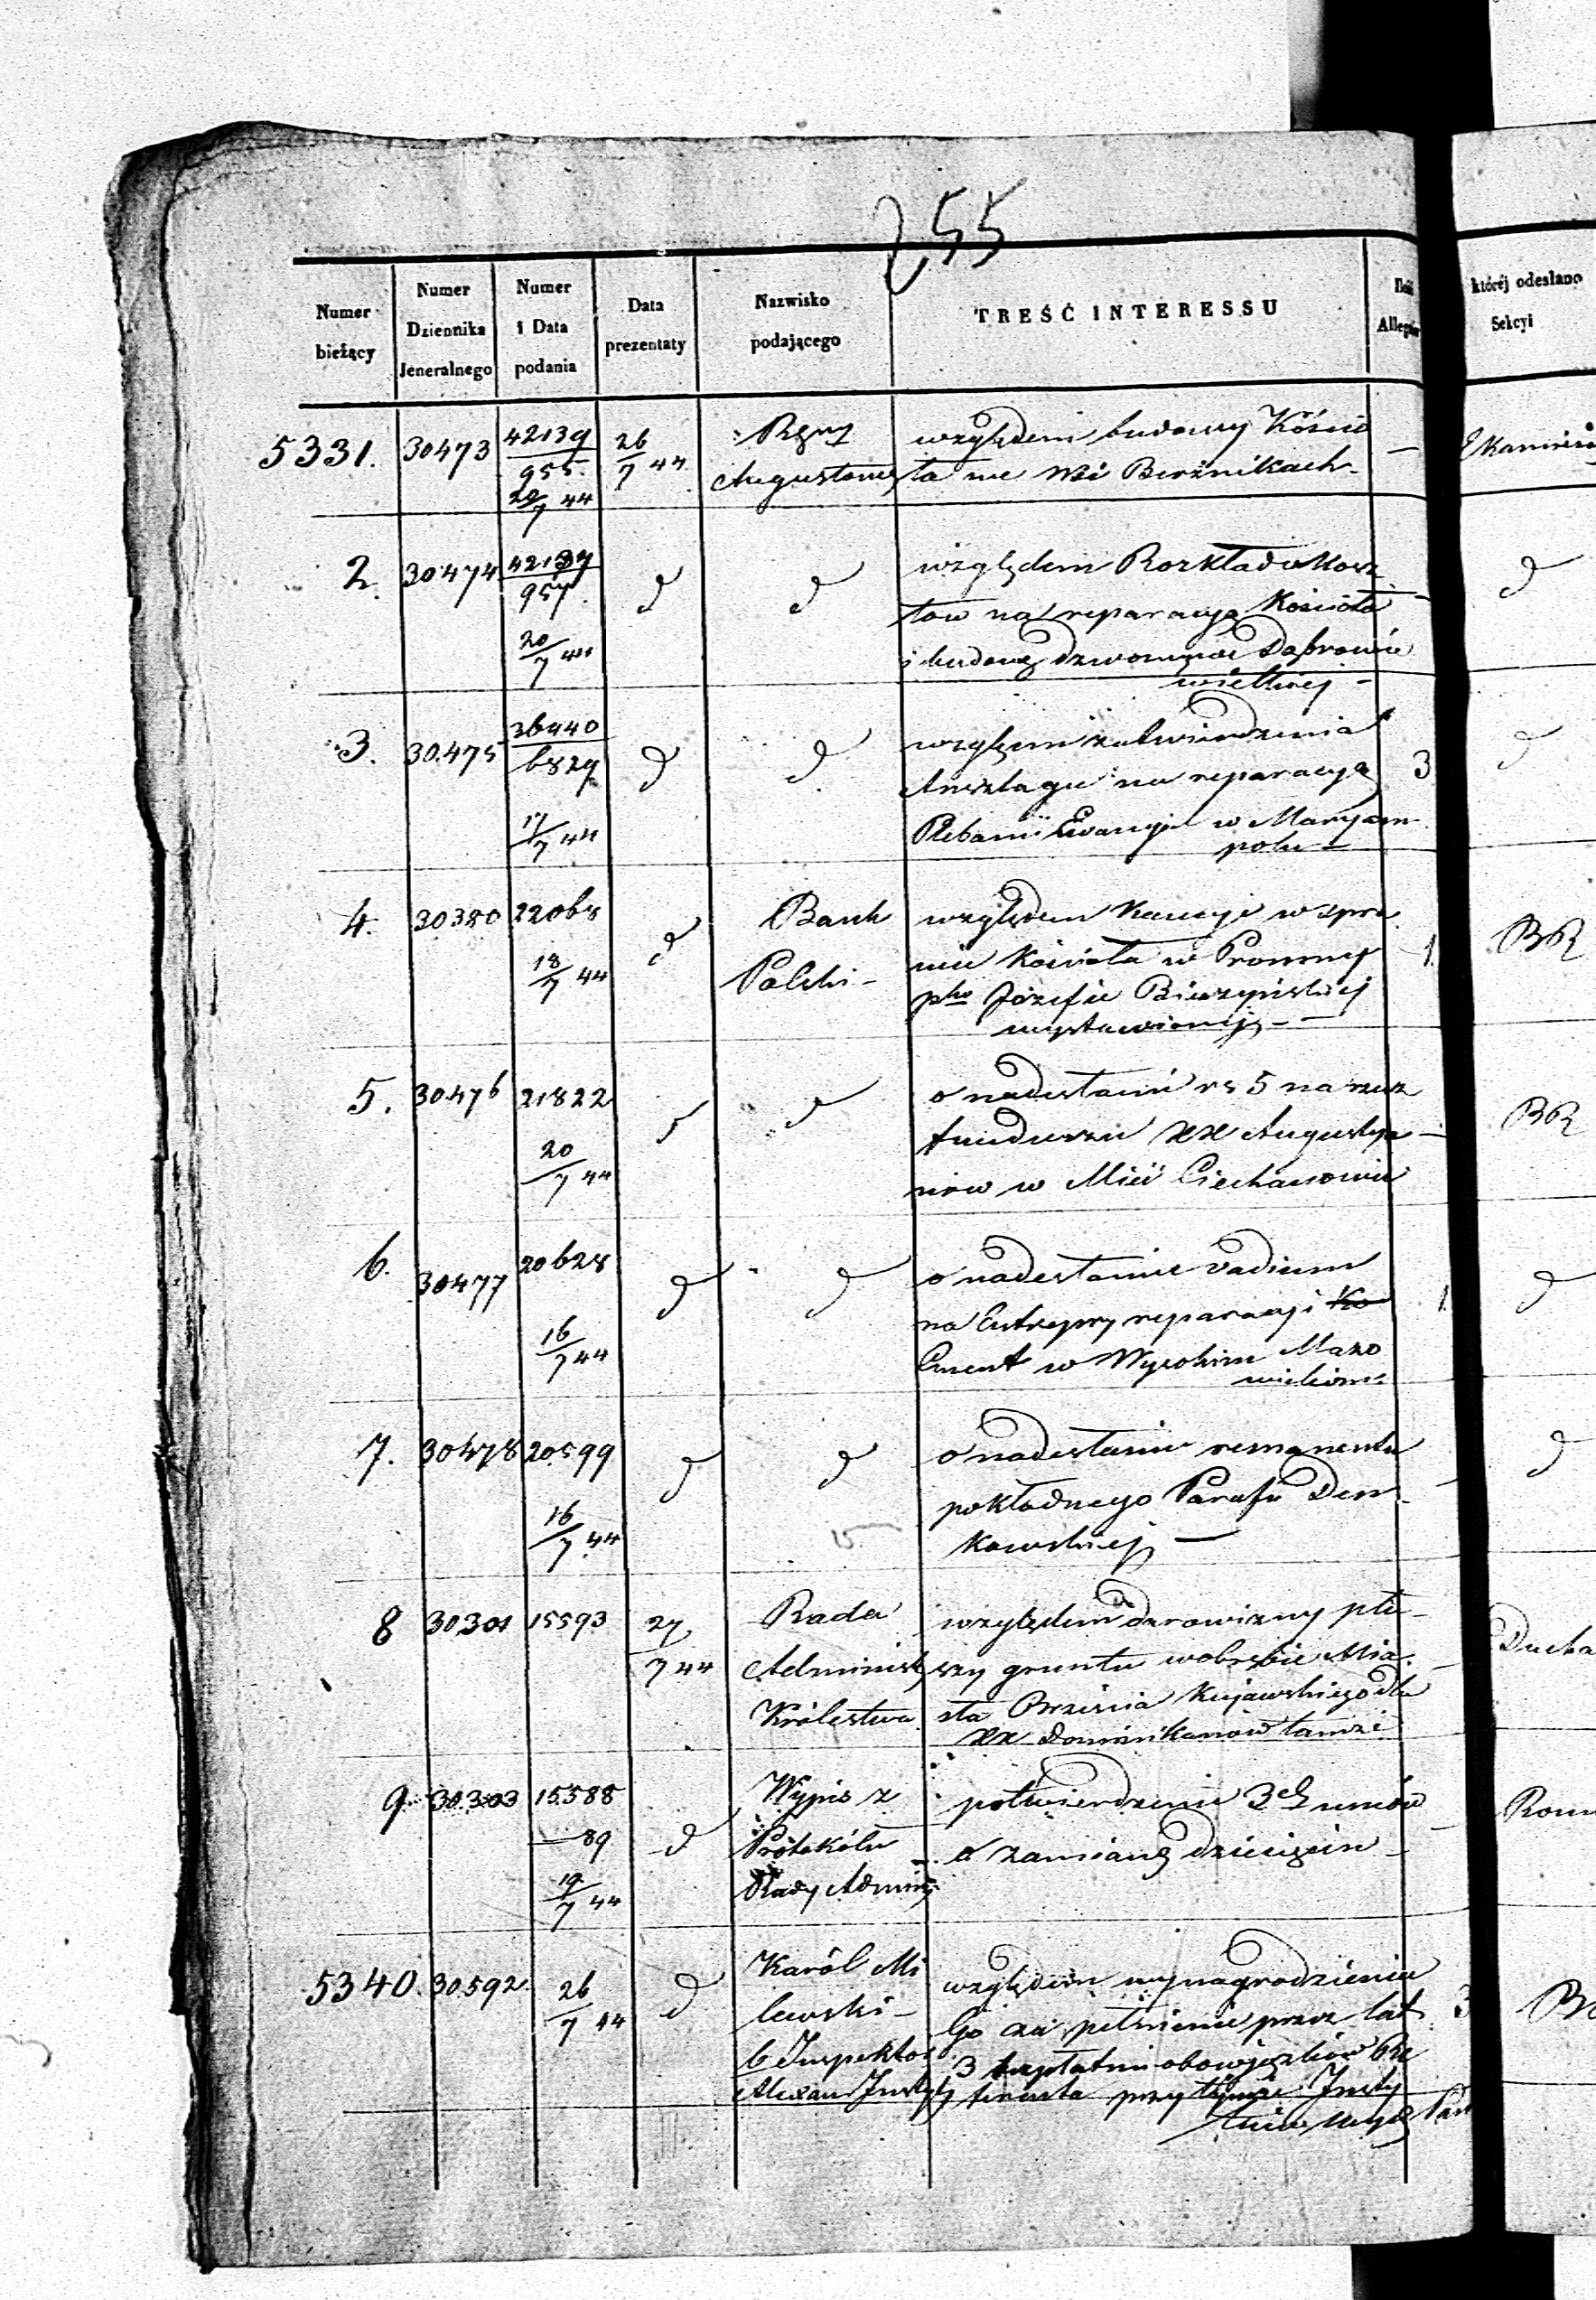 255
Numer bieżący
Numer Dziennika Jeneralnego
Numer i Data podania
Data prezentaty
Nazwisko podającego
TREŚĆ INTERESSU
Ilość Allegatów
któréj odesłano Sekcyi
5331. 30473 42139 26
955. 7 44
20/7 44
Augustows
względem budowy Kościo
ła we Wsi Berżnikach
2. 30474 42137 d d
957.
20/7 44
względem Rozkładu Kosz
tów na reparacyą Kościoła
i budowę dzwonnicy we Dąbrowie
wielkiej - d
3. 30475 36440 d d
6829
17/7 44
względem zatwierdzenia
Anszlagu na reparacyą 3 d
Plebanii Ewangel w Maryam
polu -
4. 30380 22068 d Bank
18/7 44 Polski -
względem Kaucyi w spra
wie Kościoła w Promny 1. BR
pko Józefie Bieczyńskiej
wystawionej - -
5. 30476 21822 d
20/7 44
o nadesłanie rs 5 na rzecz
funduszu XX Augustya - BR
nów w Mieś Ciechanowie
6. 30477 20628 d d
16/7 44
o nadesłanie vadium
na Entrepryz reparacyi Ko 1. d
Cment w Wysokim Mazo
wieckiem
7. 30478 20599 d d
16/7 44
o nadesłanie remanentu d
pokładnego Parafii Den
kowskiej -
8 30301 15593 27/7 44 Rada
Administ
Królestwa
względem darowizny pla
szy gruntu w obrębie Mia - Ducha
sta Brześcia Kujawskiego dla
XX Dominikanów tamże
9. 30303 15588 d Wypis z
- 89 Protokółu
19/7 44 Rady Adminis
potwierdzenie 3ch umów
o zamianę dziesięcin - Rom
5340. 30592. 26/7 44 d Karól Mi
lewski -
b Inspektor
Alexan Instyt
względem wynagrodzenia
Go za pełnienie przez lat 3
3 bezpłatnie obowiązków
przy tymże Insty
tucie